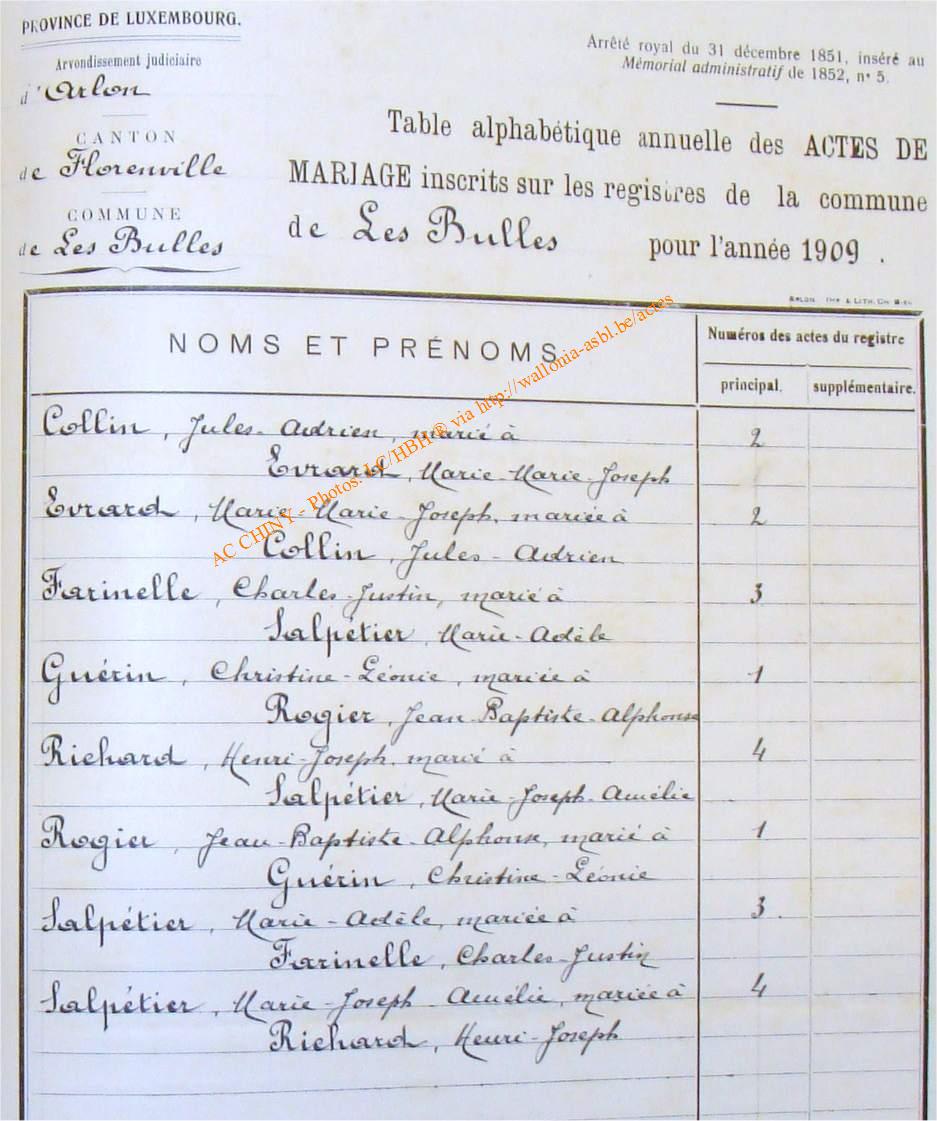 PROVINCE DE LUXEMBOURG.
Arrondissement judiciaire
d'Arlon
CANTON
de Florenville
COMMUNE
de Les Bulles
Arrêté royal du 31 décembre 1851, inséré au
Mémorial administratif de 1852, n° 5.
Table alphabétique annuelle des ACTES DE
MARIAGE inscrits sur les registres de la commune
de Les Bulles pour l'année 1909.
ARLON. IMP & LITH. CH
NOMS ET PRÉNOMS
Numéros des actes du registre
principal. supplémentaire.
Collin, Jules-Adrien, marié à 2
Evrard, Marie-Marie-Joseph
Evrard, Marie-Marie-Joseph, mariée à 2
Collin, Jules-Adrien
Farinelle, Charles-Justin, marié à 3
Salpétier, Marie-Adèle
Guérin, Christine-Léonie, mariée à 1
Rogier, Jean-Baptiste-Alphonse
Richard, Henri-Joseph, marié à 4
Salpétier, Marie-Joseph-Amélie
Rogier, Jean-Baptiste-Alphonse, marié à 1
Guérin, Christine-Léonie
Salpétier, Marie-Adèle, mariée à 3.
Farinelle, Charles-Justin
Salpétier, Marie-Joseph-Amélie, mariée à 4
Richard, Henri-Joseph
AC CHINY - Photos: LC/HBH ® via http://wallonia-asbl.be/actes